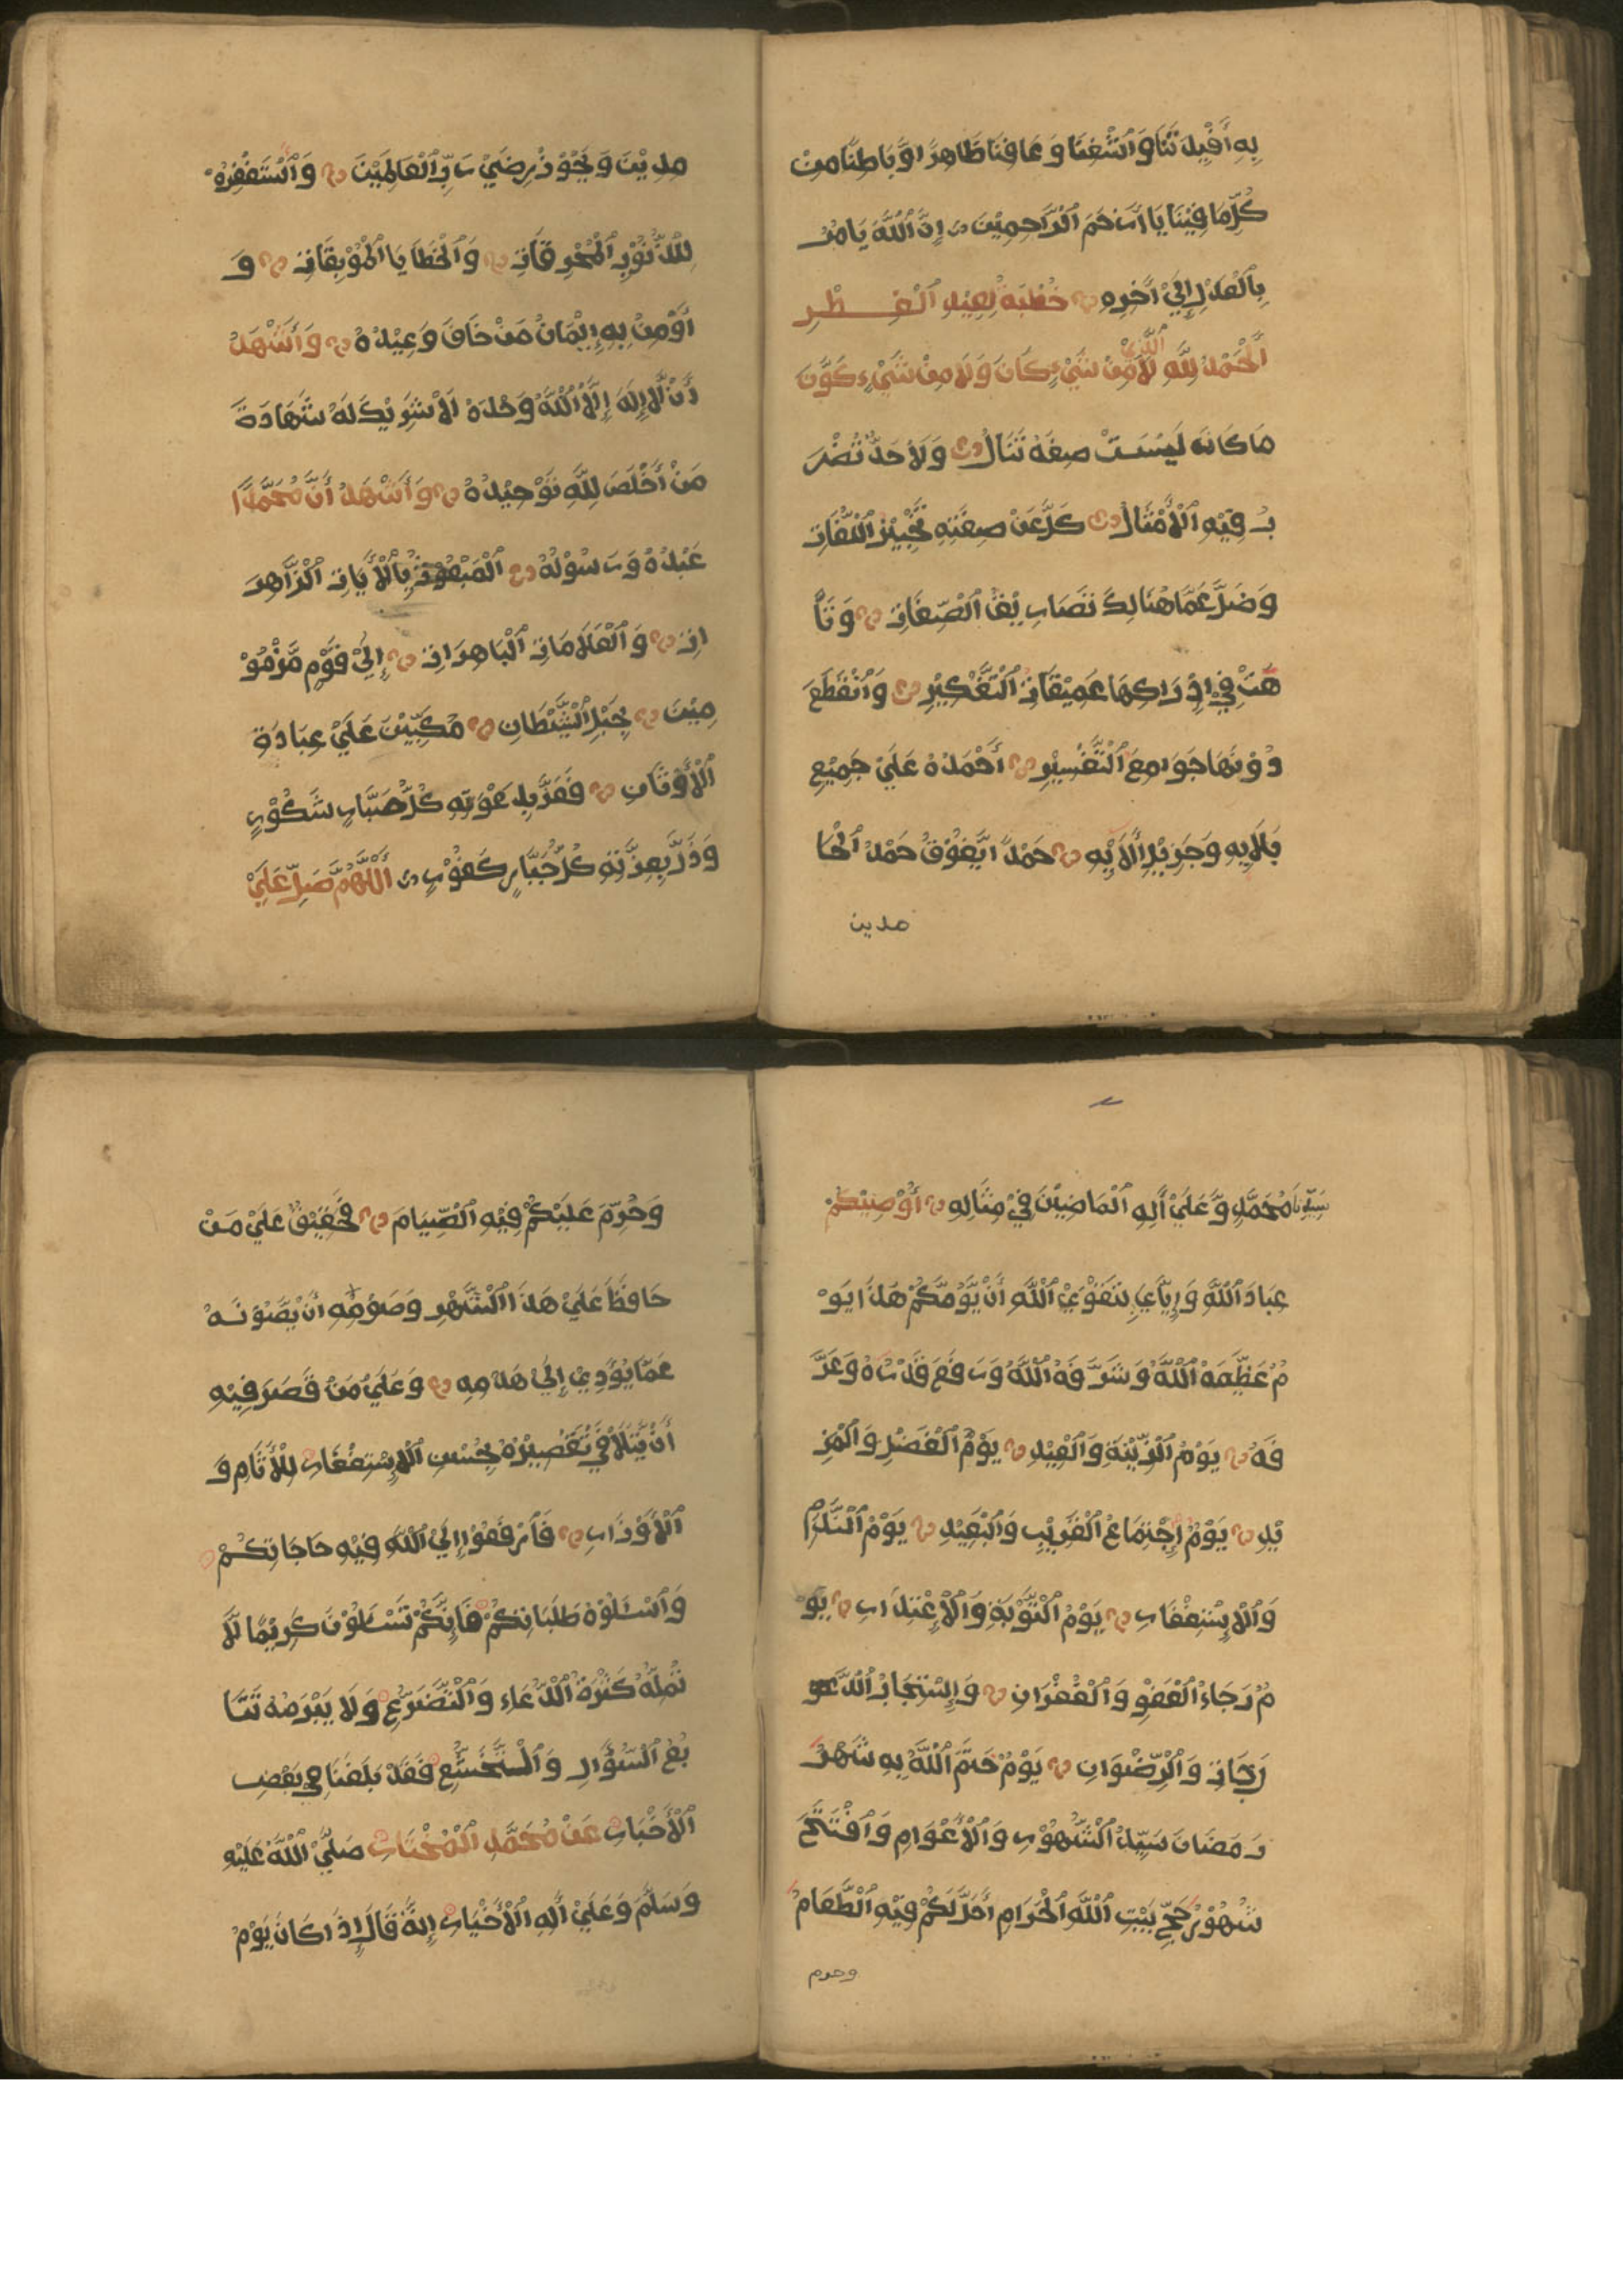 بِهِ أَفْئِدَتَنَا وَاشْغِنَا وَعَافِنَا ظَاهِرًا وَّبَاطِنًا مِنْ
كُلِّ مَا فِيْنَا يَا أَرْحَمَ الرَّاحِمِيْنَ إِنَّ اللَّهَ يَامُرُ
بِالْعَدْلِ إِلَىٰ آخِرِهِ خُطْبَةٌ لِعِيْدِ الْفِطْرِ
الْحَمْدُ لِلَّهِ الَّذِيْ لَا مِنْ شَيْءٍ كَانَ وَلَا مِنْ شَيْءٍ كَوَّنَ
مَا كَانَ لَيْسَتْ صِفَةٌ تَنَالُ وَلَا حَدٌّ تُضْرَ
بُ فِيْهِ الْأَمْثَالُ كَلَّ عَنْ صِفَتِهِ تَحْبِيْرُ اللُّغَاتِ
وَضَلَّ عَمَّا هُنَالِكَ تَصَارِيْفُ الصِّفَاتِ وَتَا
هَتْ فِيْ إِدْرَاكِهَا عَمِيْقَاتُ التَّفْكِيْرِ وَانْقَطَعَ
دُوْنَهَا جَوَامِعُ التَّفْسِيْرِ أَحْمَدُهُ عَلَىٰ جَمِيْعِ
بَلَايِهِ وَجَزِيْلِ أَلَايِهِ حَمْدًا يَّفُوْقُ حَمْدَ الْحَا
مدين
مِدِيْنَ وَيَجُوْزُ رِضَىٰ رَبِّ الْعَالَمِيْنَ وَأَسْتَغْفِرُهُ
لِلذُّنُوْبِ الْمُحْرِقَاتِ وَالْخَطَايَا الْمُوْبِقَاتِ وَ
أُوْمِنُ بِهِ إِيْمَانَ مَنْ خَافَ وَعِيْدَهُ وَأَشْهَدُ
أَنْ لَّا إِلٰهَ إِلَّا اللَّهُ وَحْدَهُ لَا شَرِيْكَ لَهُ شَهَادَةَ
مَنْ أَخْلَصَ لِلَّهِ تَوْحِيْدَهُ وَأَشْهَدُ أَنَّ مُحَمَّدًا
عَبْدُهُ وَرَسُوْلُهُ الْمَبْعُوْثُ بِالْأٰيَاتِ الزَّاهِرَ
اتِ وَالْعَلَامَاتِ الْبَاهِرَاتِ إِلَىٰ قَوْمٍ مَّزْمُوْ
مِيْنَ بِحَبْلِ الشَّيْطَانِ مُكَبِّيْنَ عَلَىٰ عِبَادَةِ
الْأَوْثَانِ فَعَزَّ بِدَعْوَتِهِ كُلُّ صَبَّارٍ شَكُوْرٍ
وَذَلَّ بِعِزَّتِهِ كُلُّ جَبَّارٍ كَفُوْرٍ أَللّٰهُمَّ صَلِّ عَلَىٰ
سَيِّدِنَا مُحَمَّدٍ وَّعَلَىٰ أٰلِهِ الْمَاضِيْنَ فِيْ مِثَالِهِ أُوْصِيْكُمْ
عِبَادَ اللَّهِ وَإِيَّايَ بِتَقْوَىٰ اللَّهِ أَنَّ يَوْمَكُمْ هٰذَا يَوْ
مٌ عَظَّمَهُ اللَّهُ وَشَرَّفَهُ اللَّهُ وَرَفَعَ قَدْرَهُ وَعَرَّ
فَهُ يَوْمُ الزِّيْنَةِ وَالْعِيْدِ يَوْمُ الْفَضْلِ وَالْمَزِ
يْدِ يَوْمُ اجْتِمَاعِ الْقَرِيْبِ وَالْبَعِيْدِ يَوْمُ النَّدَمِ
وَالْاِسْتِغْفَارِ يَوْمُ التَّوْبَةِ وَالْاِعْتِذَارِ يَوْ
مُ رَجَاءِ الْعَفْوِ وَالْغُفْرَانِ وَاسْتِنْجَازُ الدَّ
رَجَاتِ وَالرِّضْوَانِ يَوْمٌ خَتَمَ اللَّهُ بِهِ شَهْرَ
رَمَضَانَ سَيِّدَ الشُّهُوْرِ وَالْأَعْوَامِ وَافْتَتَحَ
شُهُوْرَ حَجِّ بَيْتِ اللَّهِ الْحَرَامِ أَحَلَّ لَكُمْ فِيْهِ الطَّعَامَ
وحرم
وَحُرِّمَ عَلَيْكُمْ فِيْهِ الصِّيَامَ فَحَقِيْقٌ عَلَىٰ مَنْ
حَافَظَ عَلَىٰ هٰذَا الشَّهْرِ وَصَوْمِهِ أَنْ يَّصُوْنَهُ
عَمَّا يُؤَدِّيْ إِلَىٰ هَدْمِهِ وَعَلَىٰ مَنْ قَصَرَ فِيْهِ
أَنْ يَّتَلَافَىٰ تَقْصِيْرَهُ بِحُسْنِ الْاِسْتِغْفَارِ لِلْأٰثَامِ وَ
الْأَوْزَارِ فَارْفَعُوْا إِلَىٰ اللَّهِ فِيْهِ حَاجَاتِكُمْ
وَاسْئَلُوْهُ طَلَبَاتِكُمْ فَإِنَّكُمْ تَسْئَلُوْنَ كَرِيْمًا لَّا
تُمِلُّهُ كَثْرَةُ الدُّعَاءِ وَالتَّضَرُّعِ وَلَا يَبْرَمُهُ تَتَا
بُعُ السُّؤَالِ وَالتَّخَشُّعِ فَقَدْ بَلَغَنَا فِيْ بَعْضِ
الْأَخْبَارِ عَنْ مُحَمَّدٍ الْمُخْتَارِ صَلَّىٰ اللَّهُ عَلَيْهِ
وَسَلَّمَ وَعَلَىٰ أٰلِهِ الْأَخْيَارِ إِنَّهُ قَالَ إِذَا كَانَ يَوْمُ